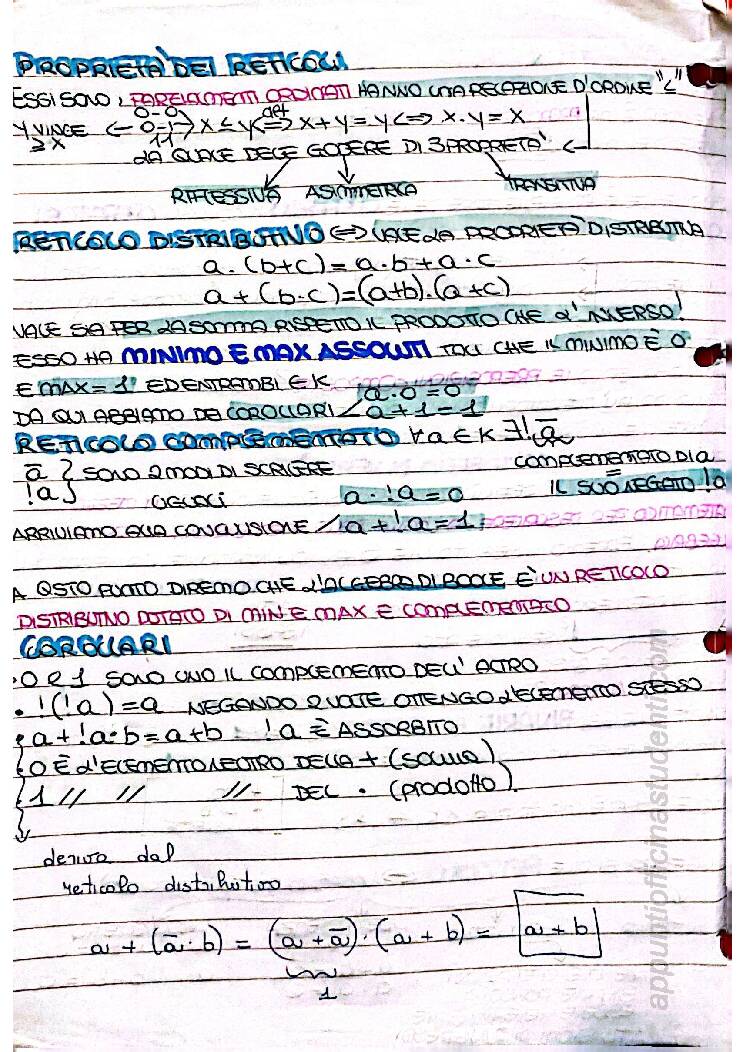 PROPRIETA' DEI RETICOLI
ESSI SONO: PARZIALMENTE ORDINATI HANNO UNA RELAZIONE D'ORDINE "≤"
Y VINCE ≥ X ← 0-0 0-1 1 1 → X ≤ Y ⇔ def X + Y = Y ⇔ X · Y = X
LA QUALE DEVE GODERE DI 3 PROPRIETA' ←
RIFLESSIVA ASIMMETRICA TRANSITIVA
RETICOLO DISTRIBUTIVO ⇔ VALE LA PROPRIETA' DISTRIBUTIVA
a · (b+c) = a · b + a · c
a + (b · c) = (a+b) · (a+c)
VALE SIA PER LA SOMMA RISPETTO IL PRODOTTO CHE L'INVERSO!
ESSO HA MINIMO E MAX ASSOLUTI TALI CHE IL MINIMO È 0
E MAX = 1 ED ENTRAMBI ∈ K
DA QUI ABBIAMO DEI COROLLARI / a · 0 = 0
a + 1 = 1
RETICOLO COMPLEMENTATO ∀a ∈ K ∃! ā
COMPLEMENTATO DI a
=
IL SUO NEGATO !a
ā } SONO 2 MODI DI SCRIVERE
!a } UGUALI
a · !a = 0
ARRIVIAMO ALLA CONCLUSIONE / a + !a = 1
A QSTO PUNTO DIREMO CHE L'ALGEBRA DI BOOLE E' UN RETICOLO
DISTRIBUTIVO DOTATO DI MIN E MAX E COMPLEMENTATO
COROLLARI
· 0 e 1 SONO UNO IL COMPLEMENTO DELL' ALTRO
· !(!a) = a NEGANDO 2 VOLTE OTTENGO L'ELEMENTO STESSO
a + !a · b = a + b !a È ASSORBITO
0 È L'ELEMENTO NEUTRO DELLA + (SOMMA)
1 // // // DEL · (prodotto).
deriva dal
reticolo distributivo
a + (ā · b) = (a + ā) · (a + b) = a + b
1
appuntiofficinastudenti.com